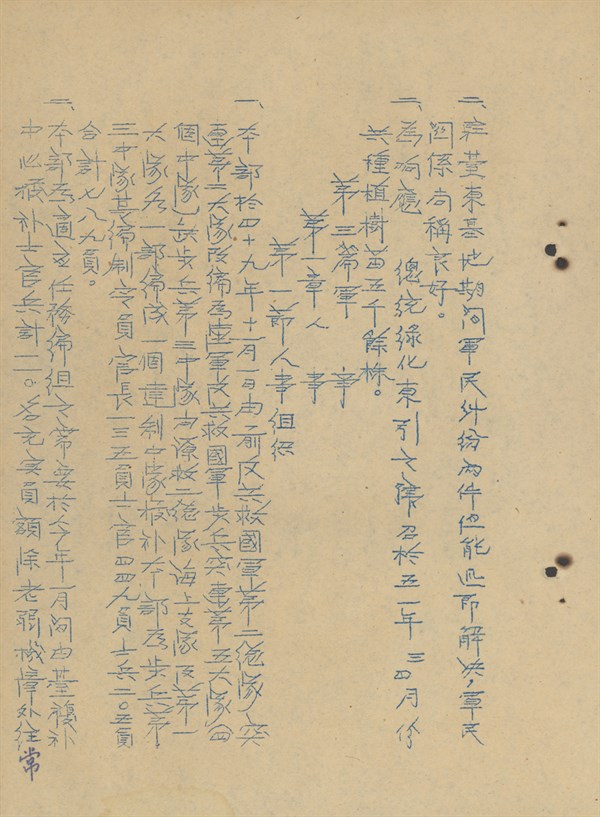 二、駐臺東基地期間軍民糾紛兩件但能迅即解決,軍民
關係尚稱良好。
二、為响應 總統綠化東引之號召於五一年三四月份
共種植樹苗五千餘株。
第三篇軍事
第一章人事
第一節人事組織
一、本部於四十九年十一月一日由前反共救國軍第二總隊突
擊第二大隊改編為陸軍反共救國軍步兵突擊第五大隊(四
個中隊)缺步兵第三中隊由原救二總隊海上支隊及第一
大隊各一部編成一個建制中隊撥補本部為步兵第
三中隊其編制官員官長一三五員士官四四九員士兵二〇五員
合計七八九員。
二、本部為適應任務編組之需要於今年一月間由臺補
中心撥補士官兵計二〇名充實員額除老弱機障外經
常